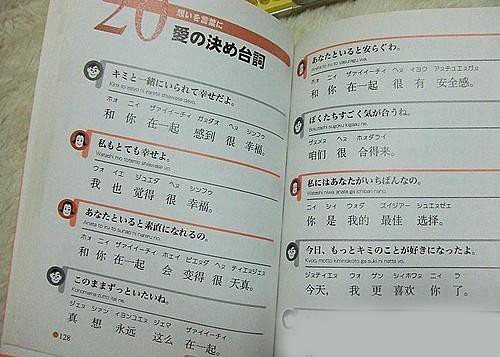 20
想いを言葉に
愛の決め台詞
キミと一緒にいられて幸せだよ。
Kimi to issyo ni irarete shiawase dayo.
ホオ ニィ ザァイイーチィ ガァダオ ヘェ シンフウ
和 你 在一起 感到 很 幸福。
私もとても幸せよ。
Watashi mo totemo shiawase yo.
ウォ イエ ジュエダ ヘェ シンフウ
我 也 觉得 很 幸福。
あなたといると素直になれるの。
Anata to iru to sunao ni nareru no.
ホオ ニィ ザァイイーチィ ホェイ ビエェダ ヘェ ティエェジェヌ
和 你 在一起 会 变得 很 天真。
このままずっといたいね。
Konomama zutto itai ne.
ジェェ シアン イヨンユエェ ジェマ ザァイイーチィ
真 想 永远 这么 在一起。
128
あなたといると安らぐわ。
Anata to iru to yasuragu wa.
ホオ ニィ ザァイイーチィ ヘェ イヨウ アァチュエェガァ
和 你 在一起 很 有 安全感。
ぼくたちすごく気が合うね。
Bokutachi sugoku kigaau ne.
ザァメェ ヘェ ホオダライ
咱们 很 合得来。
私にはあなたがいちばんなの。
Watashi niwa anata ga ichiban nano.
ニィ シィ ウォダ ズイジアー シュエェゼェ
你 是 我的 最佳 选择。
今日、もっとキミのことが好きになったよ。
Kyoo, motto kiminokoto ga suki ni natta yo.
ジェティエェ ウォ ゲン シィホワェ ニィ ラ
今天, 我 更 喜欢 你 了。